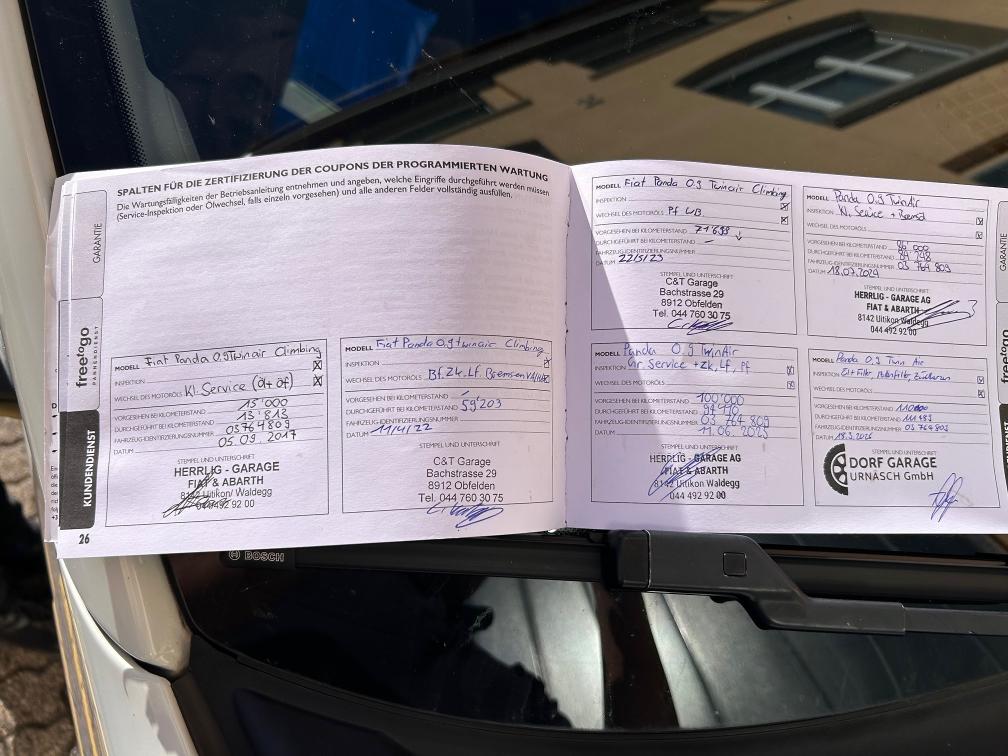 SPALTEN FÜR DIE ZERTIFIZIERUNG DER COUPONS DER PROGRAMMIERTEN WARTUNG
Die Wartungsfälligkeiten der Betriebsanleitung entnehmen und angeben, welche Eingriffe durchgeführt werden müssen
(Service-Inspektion oder Ölwechsel, falls einzeln vorgesehen) und alle anderen Felder vollständig ausfüllen.
GARANTIE
freetogo
PANNENDIENST
KUNDENDIENST
MODELL Fiat Panda 0.9 Twinair Climbing
INSPEKTION
WECHSEL DES MOTORÖLS Kl. Service (Öl + Öf)
VORGESEHEN BEI KILOMETERSTAND 15'000
DURCHGEFÜHRT BEI KILOMETERSTAND 13'813
FAHRZEUG-IDENTIFIZIERUNGSNUMMER 03764809
DATUM 05.09.2017
STEMPEL UND UNTERSCHRIFT
HERRLIG - GARAGE
FIAT & ABARTH
8142 Uitikon/ Waldegg
044 492 92 00
MODELL Fiat Panda 0.9 twinair Climbing
INSPEKTION
WECHSEL DES MOTORÖLS Bf. Zk. Lf. Bremsen
VORGESEHEN BEI KILOMETERSTAND -
DURCHGEFÜHRT BEI KILOMETERSTAND 59'203
FAHRZEUG-IDENTIFIZIERUNGSNUMMER
DATUM 11/4/22
STEMPEL UND UNTERSCHRIFT
C&T Garage
Bachstrasse 29
8912 Obfelden
Tel. 044 760 30 75
26
MODELL Fiat Panda 0.9 Twinair Climbing
INSPEKTION
WECHSEL DES MOTORÖLS Pf WB
VORGESEHEN BEI KILOMETERSTAND 71699
DURCHGEFÜHRT BEI KILOMETERSTAND -
FAHRZEUG-IDENTIFIZIERUNGSNUMMER
DATUM 22/5/23
STEMPEL UND UNTERSCHRIFT
C&T Garage
Bachstrasse 29
8912 Obfelden
Tel. 044 760 30 75
MODELL Panda 0.9 TwinAir
INSPEKTION Kl. Service +
WECHSEL DES MOTORÖLS
VORGESEHEN BEI KILOMETERSTAND 86 000
DURCHGEFÜHRT BEI KILOMETERSTAND 84 248
FAHRZEUG-IDENTIFIZIERUNGSNUMMER 03 764 809
DATUM 18.07.2024
STEMPEL UND UNTERSCHRIFT
HERRLIG - GARAGE AG
FIAT & ABARTH
8142 Uitikon Waldegg
044 492 92 00
MODELL Panda 0.9 TwinAir
INSPEKTION Service + Zk, Lf, Pf
WECHSEL DES MOTORÖLS
VORGESEHEN BEI KILOMETERSTAND 100'000
DURCHGEFÜHRT BEI KILOMETERSTAND
FAHRZEUG-IDENTIFIZIERUNGSNUMMER 03 764 809
DATUM 11.06.2025
STEMPEL UND UNTERSCHRIFT
HERRLIG - GARAGE AG
FIAT & ABARTH
8142 Uitikon Waldegg
044 492 92 00
MODELL Panda 0.9 Twin Air
INSPEKTION Öl + Filter, Pollenfilter, Zündkerzen
WECHSEL DES MOTORÖLS
VORGESEHEN BEI KILOMETERSTAND 110000
DURCHGEFÜHRT BEI KILOMETERSTAND 111483
FAHRZEUG-IDENTIFIZIERUNGSNUMMER 03 764809
DATUM 18.3.2026
STEMPEL UND UNTERSCHRIFT
DORF GARAGE
URNÄSCH GmbH
GARANTIE
BOSCH